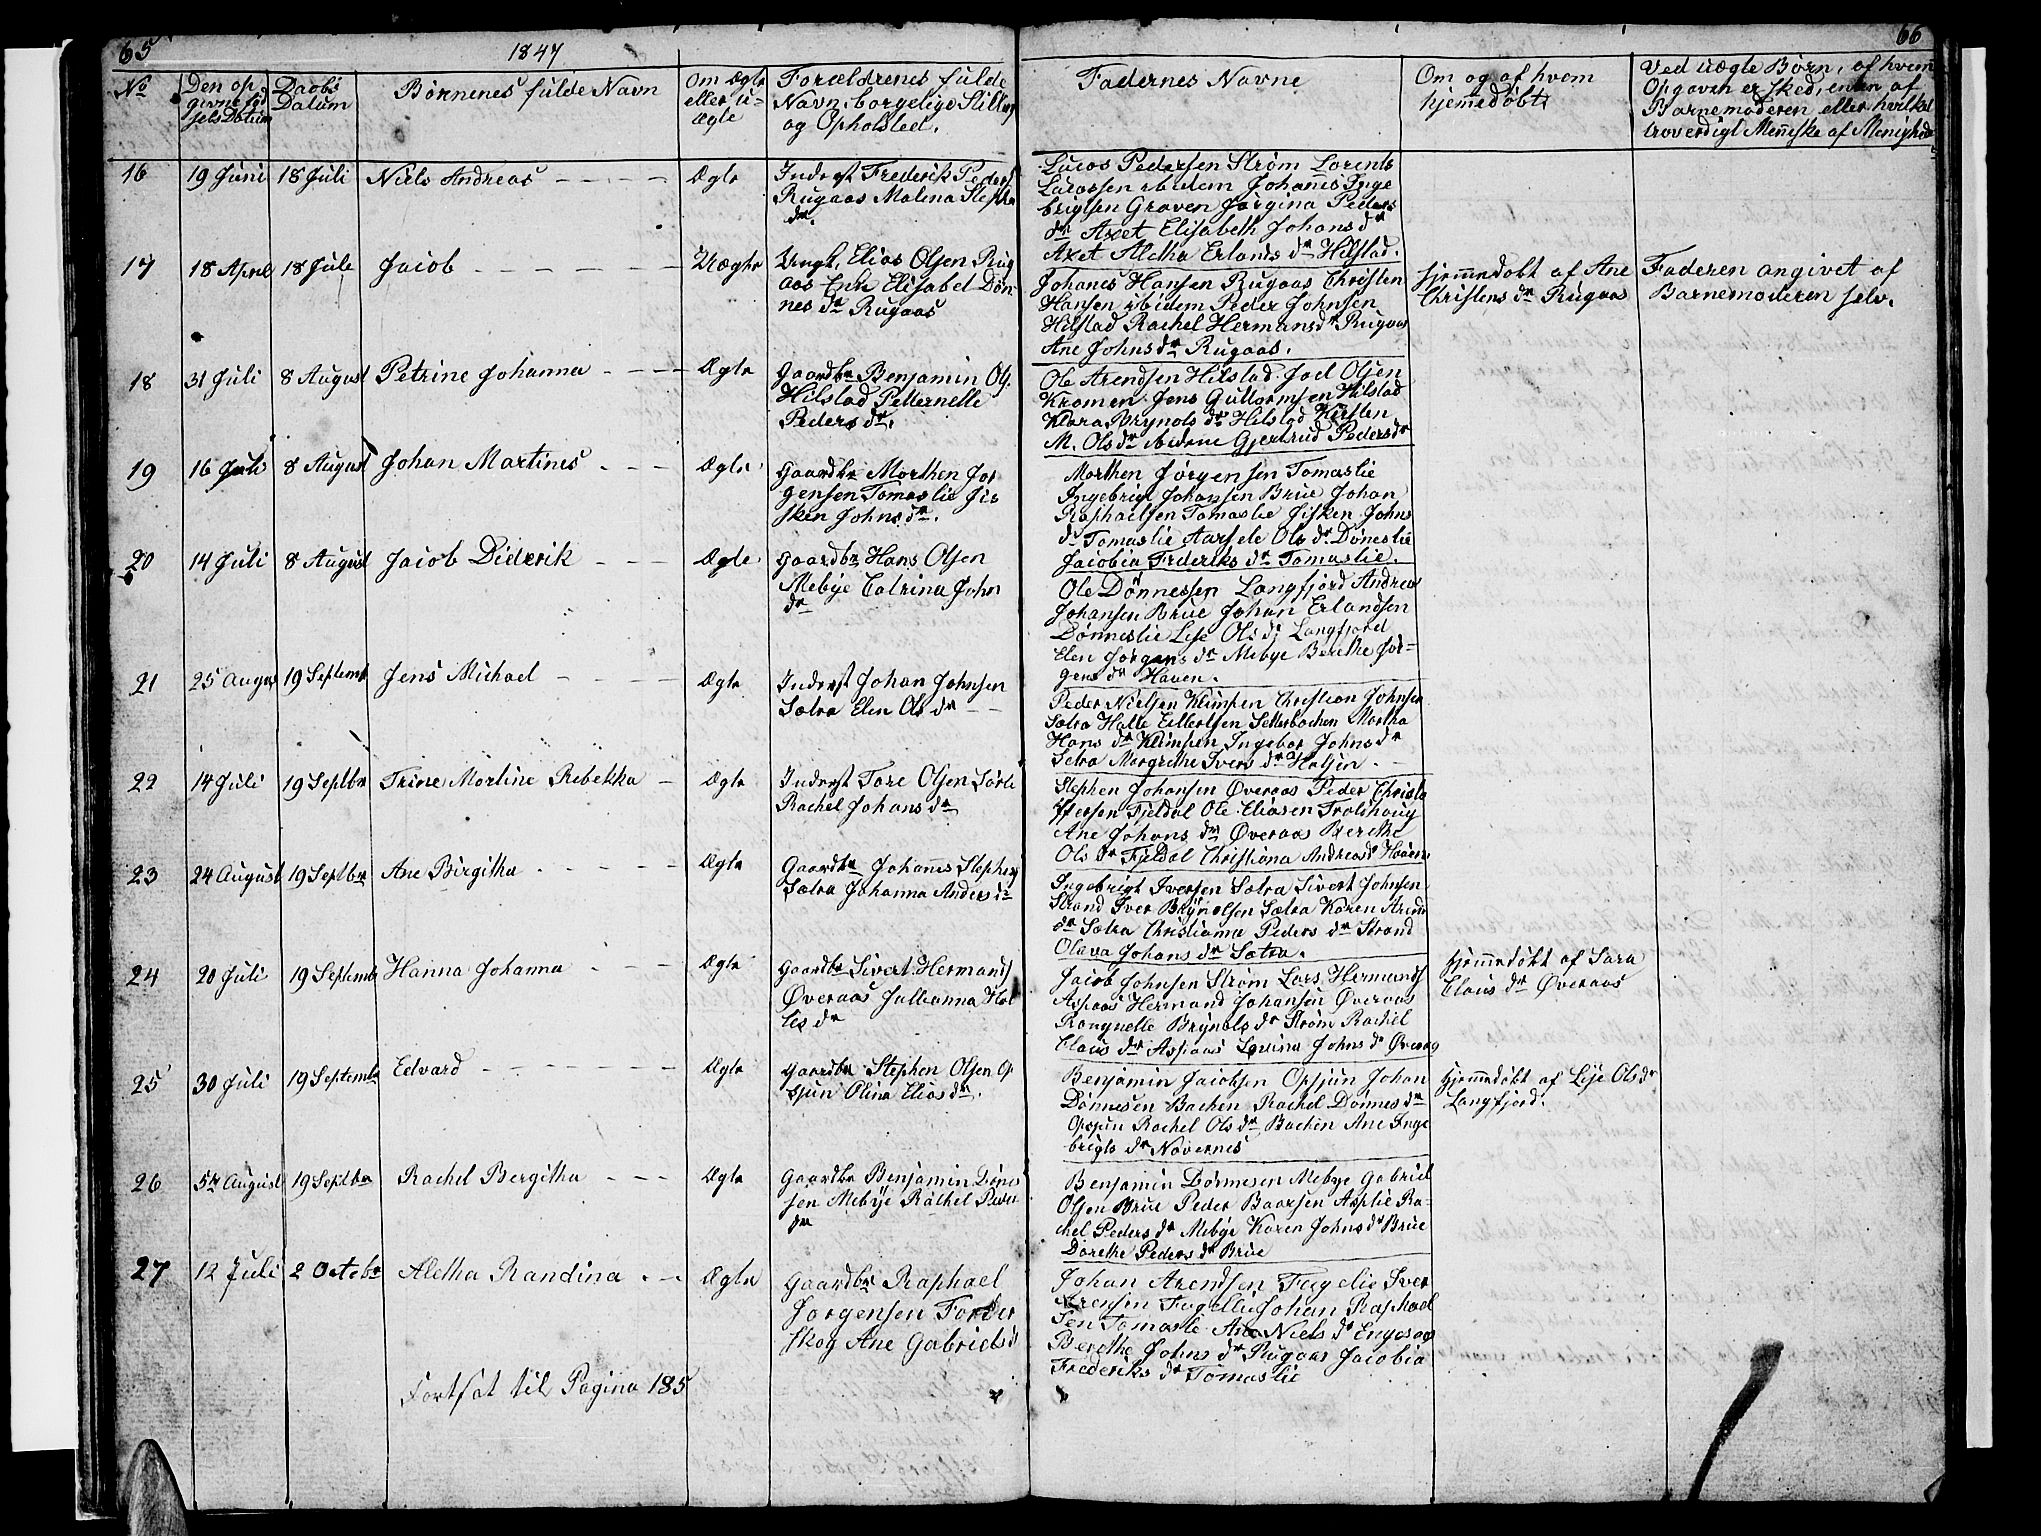 65
1847
66
No
Den op
givne fød
sels Datum
Daabs
Datum
Børnenes fulde Navn
Om Ægte
eller u-
ægte
Forældrenes fulde
Navn, borgelige Stilling
og Opholsted.
Fadernes Navne
Om og af hvem
hjemmedøbt
Ved uægte Børn, af hvem
Opgaven er sked, enten af
Barnemoderen eller hvilket
troverdigt Menneske af Menighed
16
19 Juni
18 Juli
Niels Andreas
Ægte
Inderst Frederik Peders
Rugaas Malena Stephn
dr.
Lucas Pedersen Strøm Lorents
Lucassen ibidem Johannes Inge
brigtsen Graven Jørgina Peders
dr Axet Elisabeth Johans dr
Axet Aletha Erlands dr Hilstad.
17
18 April
18 Jule
Jacob
Uægte
Ungk. Elias Olsen Rug
aas Enke Elisabet Døn
nes dr Rugaas
Johanes Hansen Rugaas Christen
Hansen ibidem Peder Johnsen
Hilstad Rachel Hermans dr Rugaas
Ane Johns dr Rugaas.
Hjemmedøbt af Ane
Christens dr Rugaas
Faderen angivet af
Barnemoderen selv.
18
31 Juli
8 August
Petrine Johanna
Ægte
Gaardbr Benjamin Ols.
Hilstad Petternelle
Peders dr.
Ole Arendsen Hilstad Joel Olsen
Kromen Jens Guttormsen Hilstad
Klara Brynols dr Hilstad Kirsten
M. Ols dr ibidem Gjertrud Peders dr
19
16 Juli
8 August
Johan Martines
Ægte
Gaardbr Morthen Jør
gensen Tomaslie Fis
ken Johns dr.
Morthen Jørgensen Tomaslie
Ingebrigt Johansen Brue Johan
Raphaelsen Tomaslie Fisken Johns
d. Tomaslie Aarsele Ols dr. Døneslie
Jacobia Frderiks dr Tomaslie.
20
14 Juli
8 August
Jacob Diderik
Ægte
Gaardbr Hans Olsen
Mebye Catrina John
dr
Ole Dønnessen Langfjord Andreas
Johansen Brue Johan Erlandsen
Dønneslie Lise Ols dr Langfjord
Elen Jørgens dr Mebye Berethe Jør-
gens dr Haven.
21
25 August
19 Septemb
Jens Michael
Ægte
Inderst Johan Johnsen
Sætra Elen Ols dr
Peder Nielsen Klimpen Christian Johnsen
Sætra Halle Eilertsen Setterbachen Martha
Hans dr Klimpen Ingebor Johns dr
Setra Margrethe Ivers dr Halsin.
22
14 Juli
19 Septbr
Trine Martine Rebekka
Ægte
Inderst Tore Olsen Sørli
Rachel Johans dr
Stephen Johansen Øveraas Peder Christo
ffersen Fjeldal Ole Eliasen Trolshoug
Ane Johans dr Øveraas Berethe
Ols dr Fjeldal Christiana Andreas d Haaven
23
24 August
19 Septbr
Ane Birgitha
Ægte
Gaardbr Johannes Stephens
Sætra Johanna Anders dr
Ingebrigt Iversen Sætra Sivert Johnsen
Strand Iver Brynolsen Sætra Karen Arends
dr Sætra Christianna Peders dr Strand
Olava Johans dr Sætra.
24
20 Juli
19 Septemb
Hanna Johanna
Ægte
Gaardbr Sivert Hermands
Øveraas Julianna Hal
les dr
Jacob Johnsen Strøm Lars Hermands
Aspaas Hermand Johansen Øveraas
Rangnelle Brynols dr Strøm Rachel
Claus dr Aspaas Lovina Johns dr Øveraas
Hjemmedøbt af Sara
Claus dr Øveraas
25
30 Juli
19 Septembr
Edvard
Ægte
Gaardbr Stephen Olsen Op
sjun Olina Elias dr.
Benjamin Jacobsen Opsjun Johan
Dønnesen Bachen Rachel Dønnes dr
Opsjun Rachel Ols dr Bachen Ane Inge
brigts dr Navernes
Hjemmedøbt af Lise Ols dr
Langfjord.
26
5te August
19 Septbr
Rachel Bergitha
Ægte
Gaardbr Benjamin Dønes
sen Mebye Rachel Peders
dr
Benjamin Dønnesen Mebye Gabriel
Olsen Brue Peder Baarsen Asplie Ra-
chel Peders dr Mebye Karen Johns dr Brue
Dorethe Peders dr Brue
27
12 Juli
2 Octobr
Aletha Randina
Ægte
Gaardbr Raphael
Jørgensen Forder
skog Ane Gabriels d
Johan Arendsen Fuglie Iver
Arensen Fuglli Johan Raphael
sen Tomasli Ane Niels dr Engesaas
Berethe Johns dr Rugaas Jacobia
Frederiks dr Tomaslie
Fortsat til Pagina 185